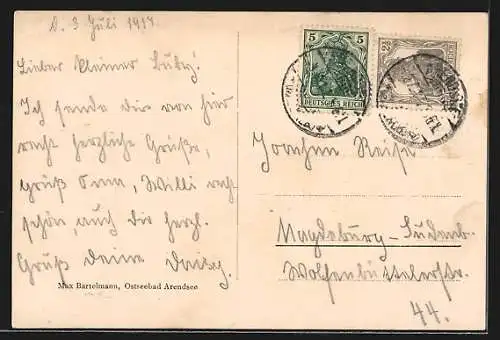 d. 3 Juli 1917
Lieber kleiner Buby!
Ich sende dir von hier
recht herzliche Grüße,
grüß Oma, Willi recht
schön, auch dir herzl.
Gruß deine Daisy.
Max Bartelmann, Ostseebad Arendsee
5 5
DEUTSCHES REICH
2½
Joachim Reise
Magdeburg-Sudenb.
Wolfenbüttelerstr.
44.